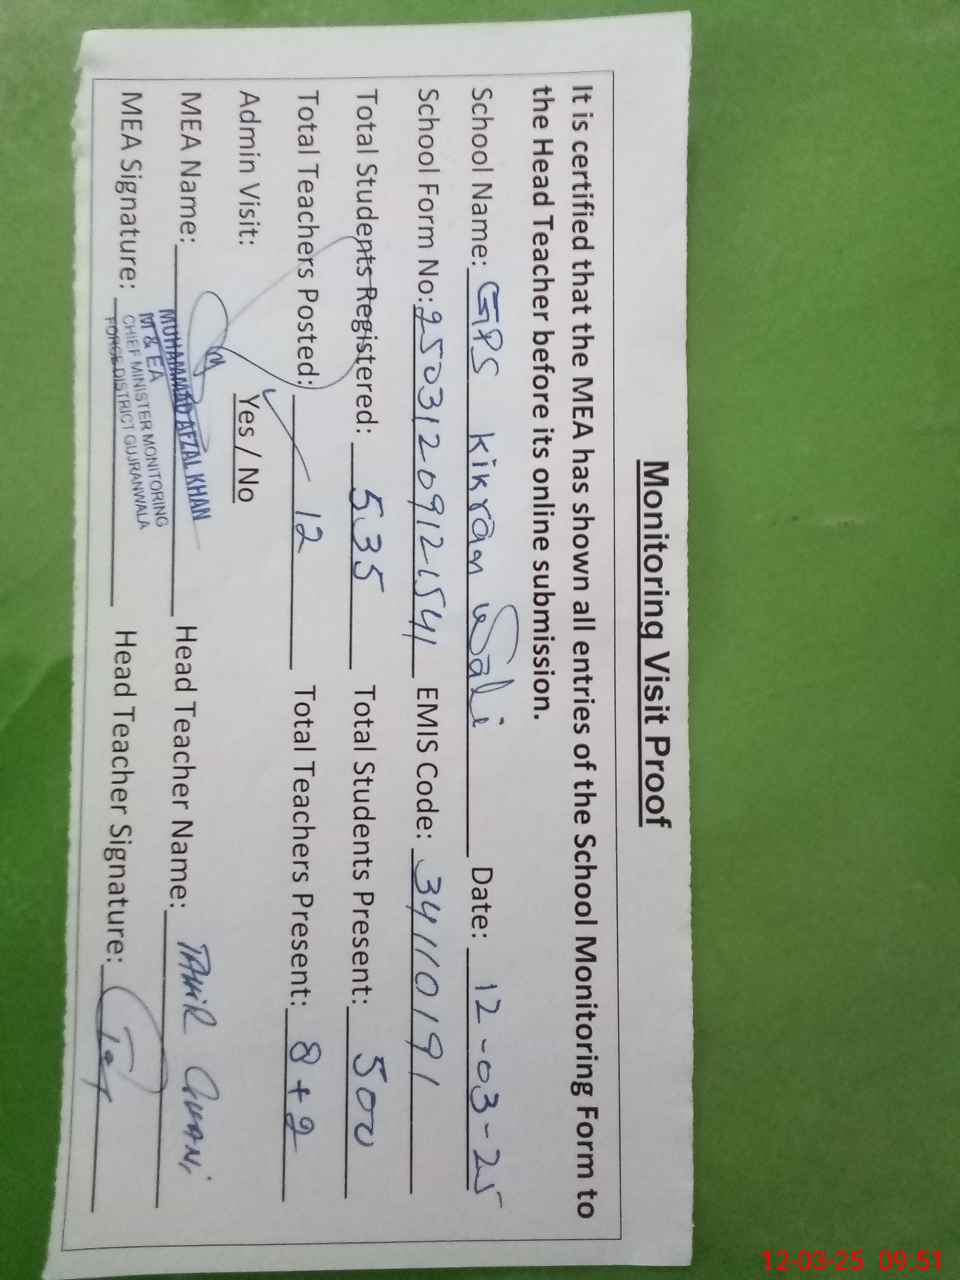 Monitoring Visit Proof
It is certified that the MEA has shown all entries of the School Monitoring Form to
the Head Teacher before its online submission.
School Name: GPS kikran Wali Date: 12-03-25
School Form No: 25031209121541 EMIS Code: 34110191
Total Students Registered: 535 Total Students Present: 500
Total Teachers Posted: 12 Total Teachers Present: 8+2
Admin Visit: Yes / No
MEA Name: Head Teacher Name: TAHIR GHANI
MUHAMMAD AFZAL KHAN
M & EA
CHIEF MINISTER MONITORING
FORCE DISTRICT GUJRANWALA
MEA Signature: Head Teacher Signature:
12-03-25 09:51